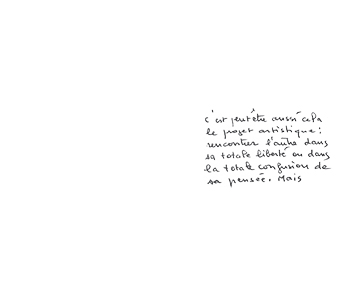 c'est peut être aussi cela
le projet artistique :
rencontrer l'autre dans
sa totale liberté ou dans
la totale confusion de
sa pensée. Mais